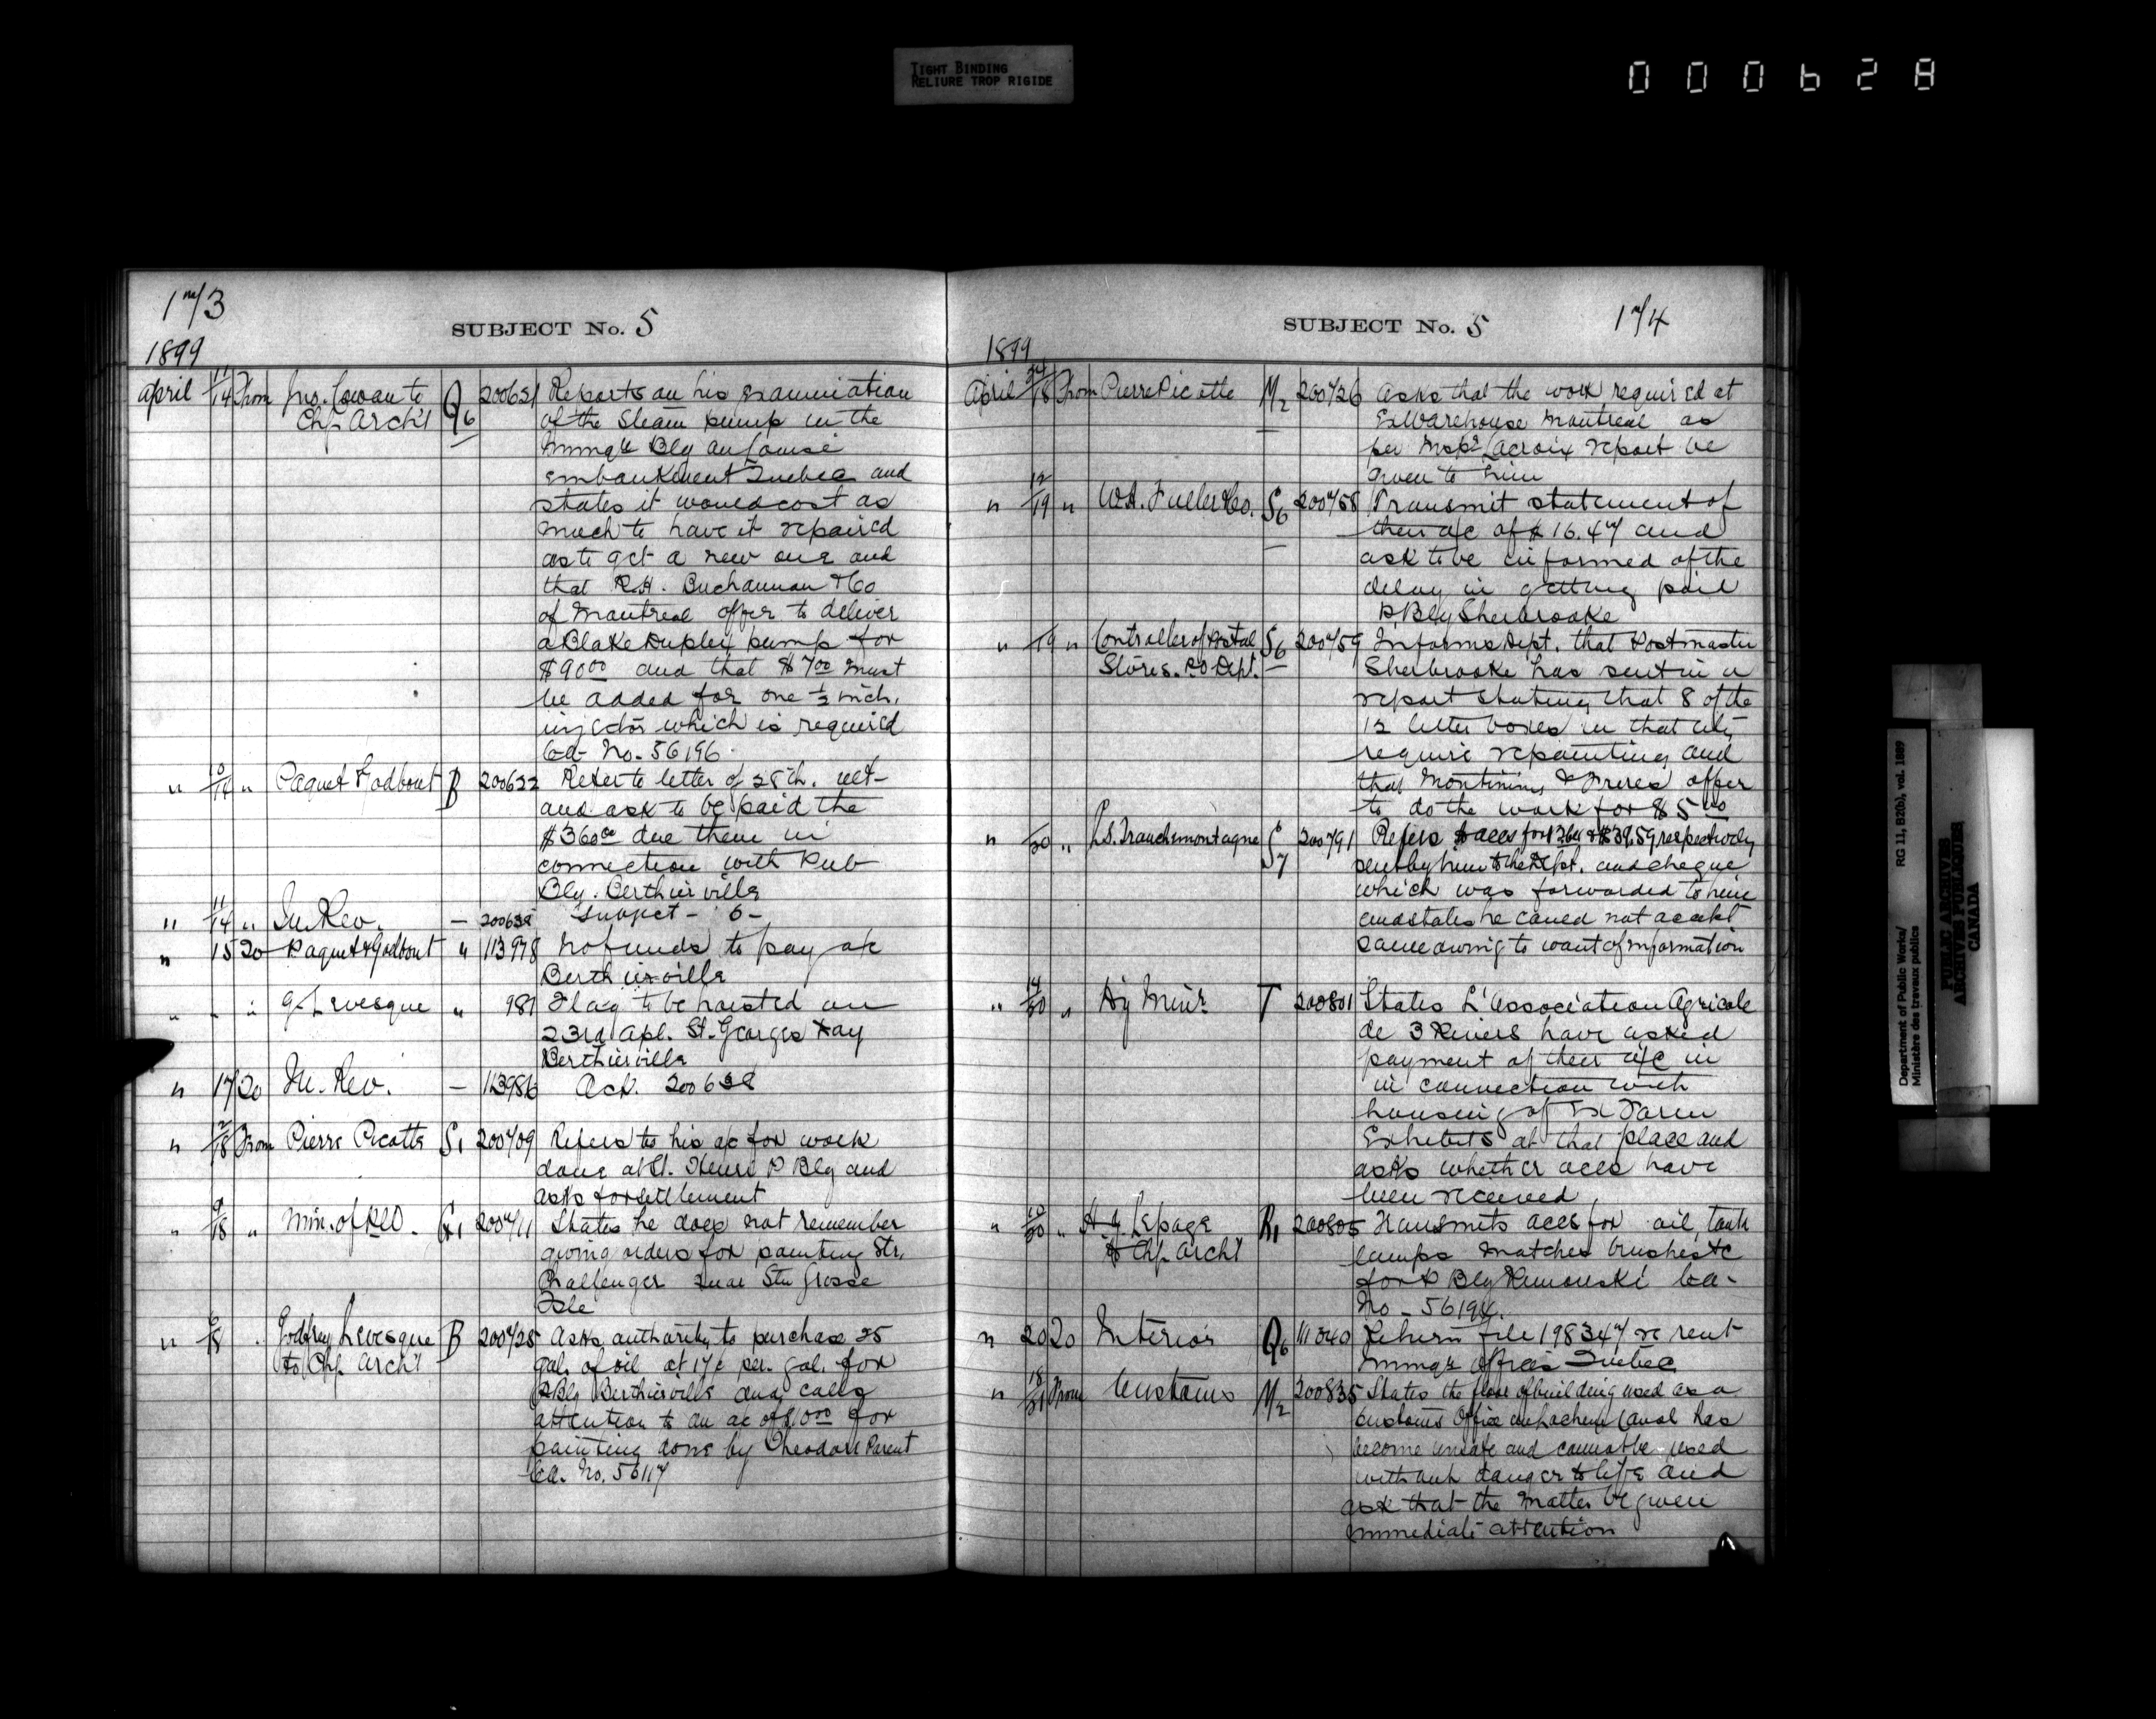 TIGHT BINDING
RELIURE TROP RIGIDE
000628
173
SUBJECT No. 5
1899
April 11/14 From Jno. Cowan to Q6 200621 Reports on his examination
Chf. Arch't of the Steam pump in the
Immig'n Bldg on Louise
embankment Quebec and
states it would cost as
much to have it repaired
as to get a new one and
that R.H. Buchannan & Co
of Montreal offer to deliver
a Blake Duplex pump for
$90 00 and that $7 00 must
be added for one 1/2 inch.
injector which is required
Ca- No. 56196
" 10/14 " Paquet & Godbout B 200622 Refer to letter of 25th. ult-
and ask to be paid the
$360 00 due them in
connection with Pub
Bly. Berthierville
" 11/14 " In. Rev. — 200638 Subject - 6 -
" 15 20 Paquet & Godbout " 113978 No funds to pay a/c
Berthierville
" - " G. Levesque " 981 Flag to be hoisted on
23rd Apl. St. Georges Day
Berthierville
" 17 20 In. Rev. — 113986 Ack. 200638
" /18 From Pierre Picotte S1 200709 Refers to his a/c for work
done at St. Henri P Bly and
asks for settlement
" 9/18 " Min. of R&O. G1 200711 States he does not remember
giving orders for painting Str.
Challenger Quar Stn Grosse
Isle
" 6/18 . Godfrey Levesque B 200725 Asks authority to purchase 25
to Chf. Arch't gals of oil at 17¢ per. gal. for
P Bly Berthierville and calls
attention to an a/c of $10 00 for
painting done by Theodore Parent
Ca. No. 56117
SUBJECT No. 5
174
1899
April /18 From Pierre Picotte M2 200726 Asks that the work required at
Ex Warehouse Montreal as
per Insp'r Lacroix report be
given to him
" 12/19 " W.H. Fuller & Co. S6 200758 Transmit statement of
their a/c of $ 16.47 and
ask to be informed of the
delay in getting paid
P. Bly Sherbrooke
" /19 " Controller of Postal S6 200759 Informs Dept. that Postmaster
Stores. P.O Dept. Sherbrooke has sent in a
report stating that 8 of the
12 letter boxes in that city
require repainting and
that Montminy & Freres offer
to do the work for $5 00
" /20 " L.S. Tranchemontagne S7 200791 Refers to accs for & $39.59 respectively
sent by him to the Dept. and cheque
which was forwarded to him
and states he could not accept
same owing to want of information
" 14/20 " Ag Min'r T 200801 States L'Association Agricole
de 3 Rivers have asked
payment of their a/c in
in connection with
housing of Ex Farm
Exhibits at that place and
asks whether accs have
been received
" /20 " H.G. Lepage R1 200805 Transmits accs for oil, tank
to Chf. Arch't lamps matches brushes &c
for P Bly Rimouski Ca-
No - 56194.
" 20 20 Interior Q6 111040 Return file 198347 re rent
Immig'n offices Quebec
" 18/21 From Customs M2 200835 States the floor of building used as a
Customs Office on Lachine Canal has
become unsafe and cannot be used
without danger to life and
ask that the matter be given
immediate attention
Department of Public Works/ RG 11, B2(b), vol. 1889
Ministère des travaux publics
PUBLIC ARCHIVES
ARCHIVES PUBLIQUES
CANADA